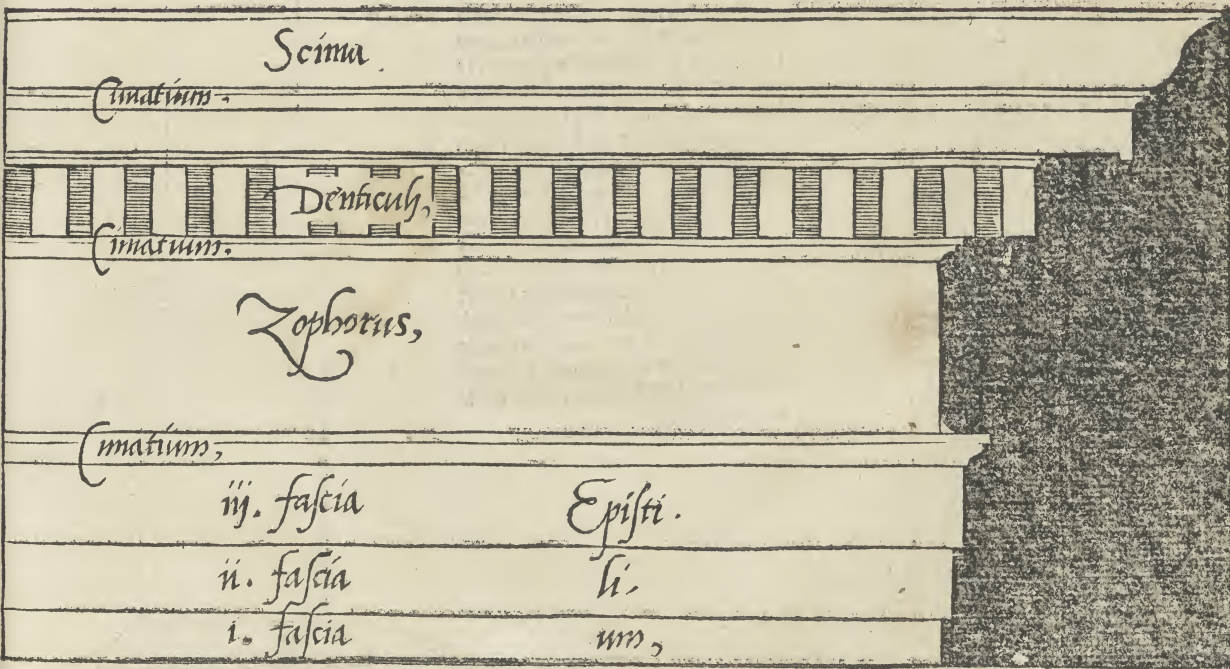 Scima.
Cimatium.
Denticulj,
Cimatium.
Zophorus,
Cimatium,
iij. faſcia Epiſti.
ii. faſcia li.
i. faſcia um,